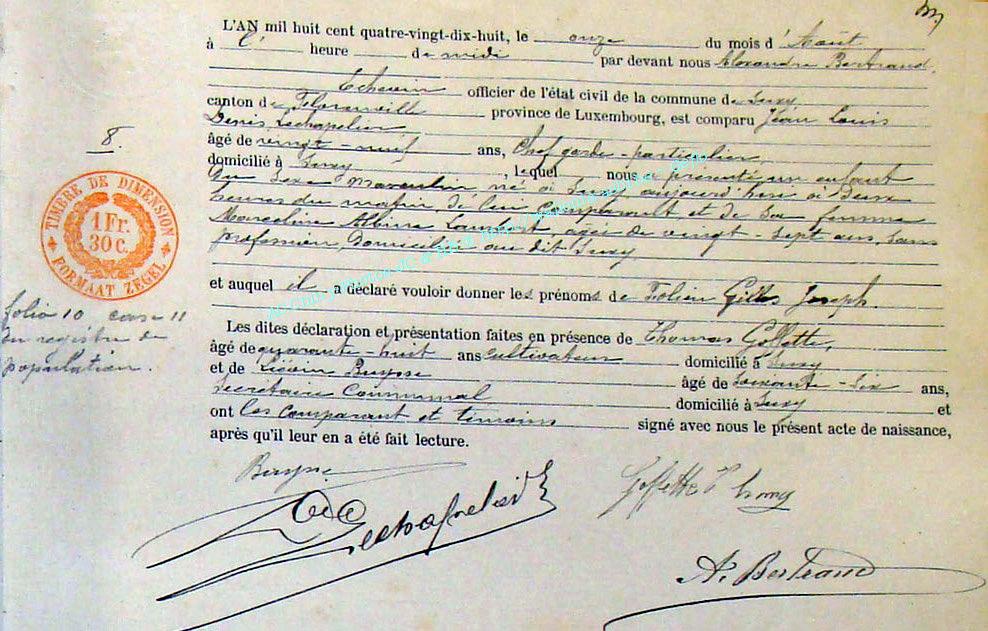 L'AN mil huit cent quatre-vingt-dix-huit, le onze du mois d'Août
à l' heure de midi par devant nous Alexandre Bertrand,
Echevin officier de l'état civil de la commune de Suxy,
canton de Florenville province de Luxembourg, est comparu Jean Louis
Denis Lechapelier,
âgé de vingt-neuf ans, Chef garde-particulier,
domicilié à Suxy, lequel nous a présenté un enfant
du sexe masculin né à Suxy aujourd'hui à deux
heures du matin, de lui comparant et de sa femme
Marceline Albine Lambert, âgée de vingt-sept ans, sans
profession, domiciliée au dit Suxy
et auquel il a déclaré vouloir donner les prénoms de Folien Gilles Joseph.
Les dites déclaration et présentation faites en présence de Thomas Goffette,
âgé de quarante-huit ans cultivateur domicilié à Suxy
et de Buysse âgé de soixante-six ans,
Secrétaire Communal domicilié à Suxy et
ont les comparant et témoins signé avec nous le présent acte de naissance,
après qu'il leur en a été fait lecture.
8.
TIMBRE DE DIMENSION
1 Fr.
30 c.
FORMAAT ZEGEL
folio 10 case 11
du registre de
population.
Buysse
Goffette Thomas
Lechapelier
A. Bertrand